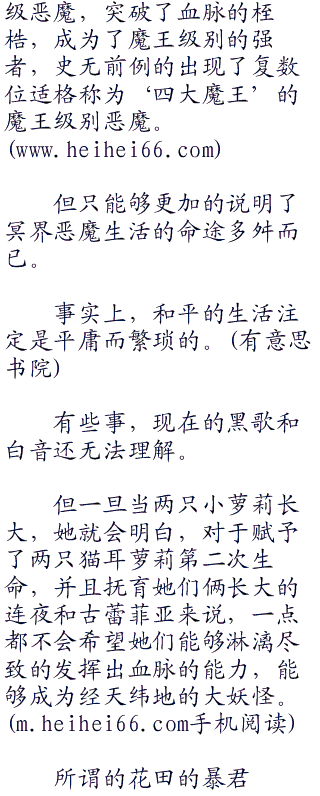 级恶魔，突破了血脉的桎
梏，成为了魔王级别的强
者，史无前例的出现了复数
位适格称为‘四大魔王’的
魔王级别恶魔。
(www.heihei66.com)
但只能够更加的说明了
冥界恶魔生活的命途多舛而
已。
事实上，和平的生活注
定是平庸而繁琐的。(有意思
书院)
有些事，现在的黑歌和
白音还无法理解。
但一旦当两只小萝莉长
大，她就会明白，对于赋予
了两只猫耳萝莉第二次生
命，并且抚育她们俩长大的
连夜和古蕾菲亚来说，一点
都不会希望她们能够淋漓尽
致的发挥出血脉的能力，能
够成为经天纬地的大妖怪。
(m.heihei66.com手机阅读)
所谓的花田的暴君